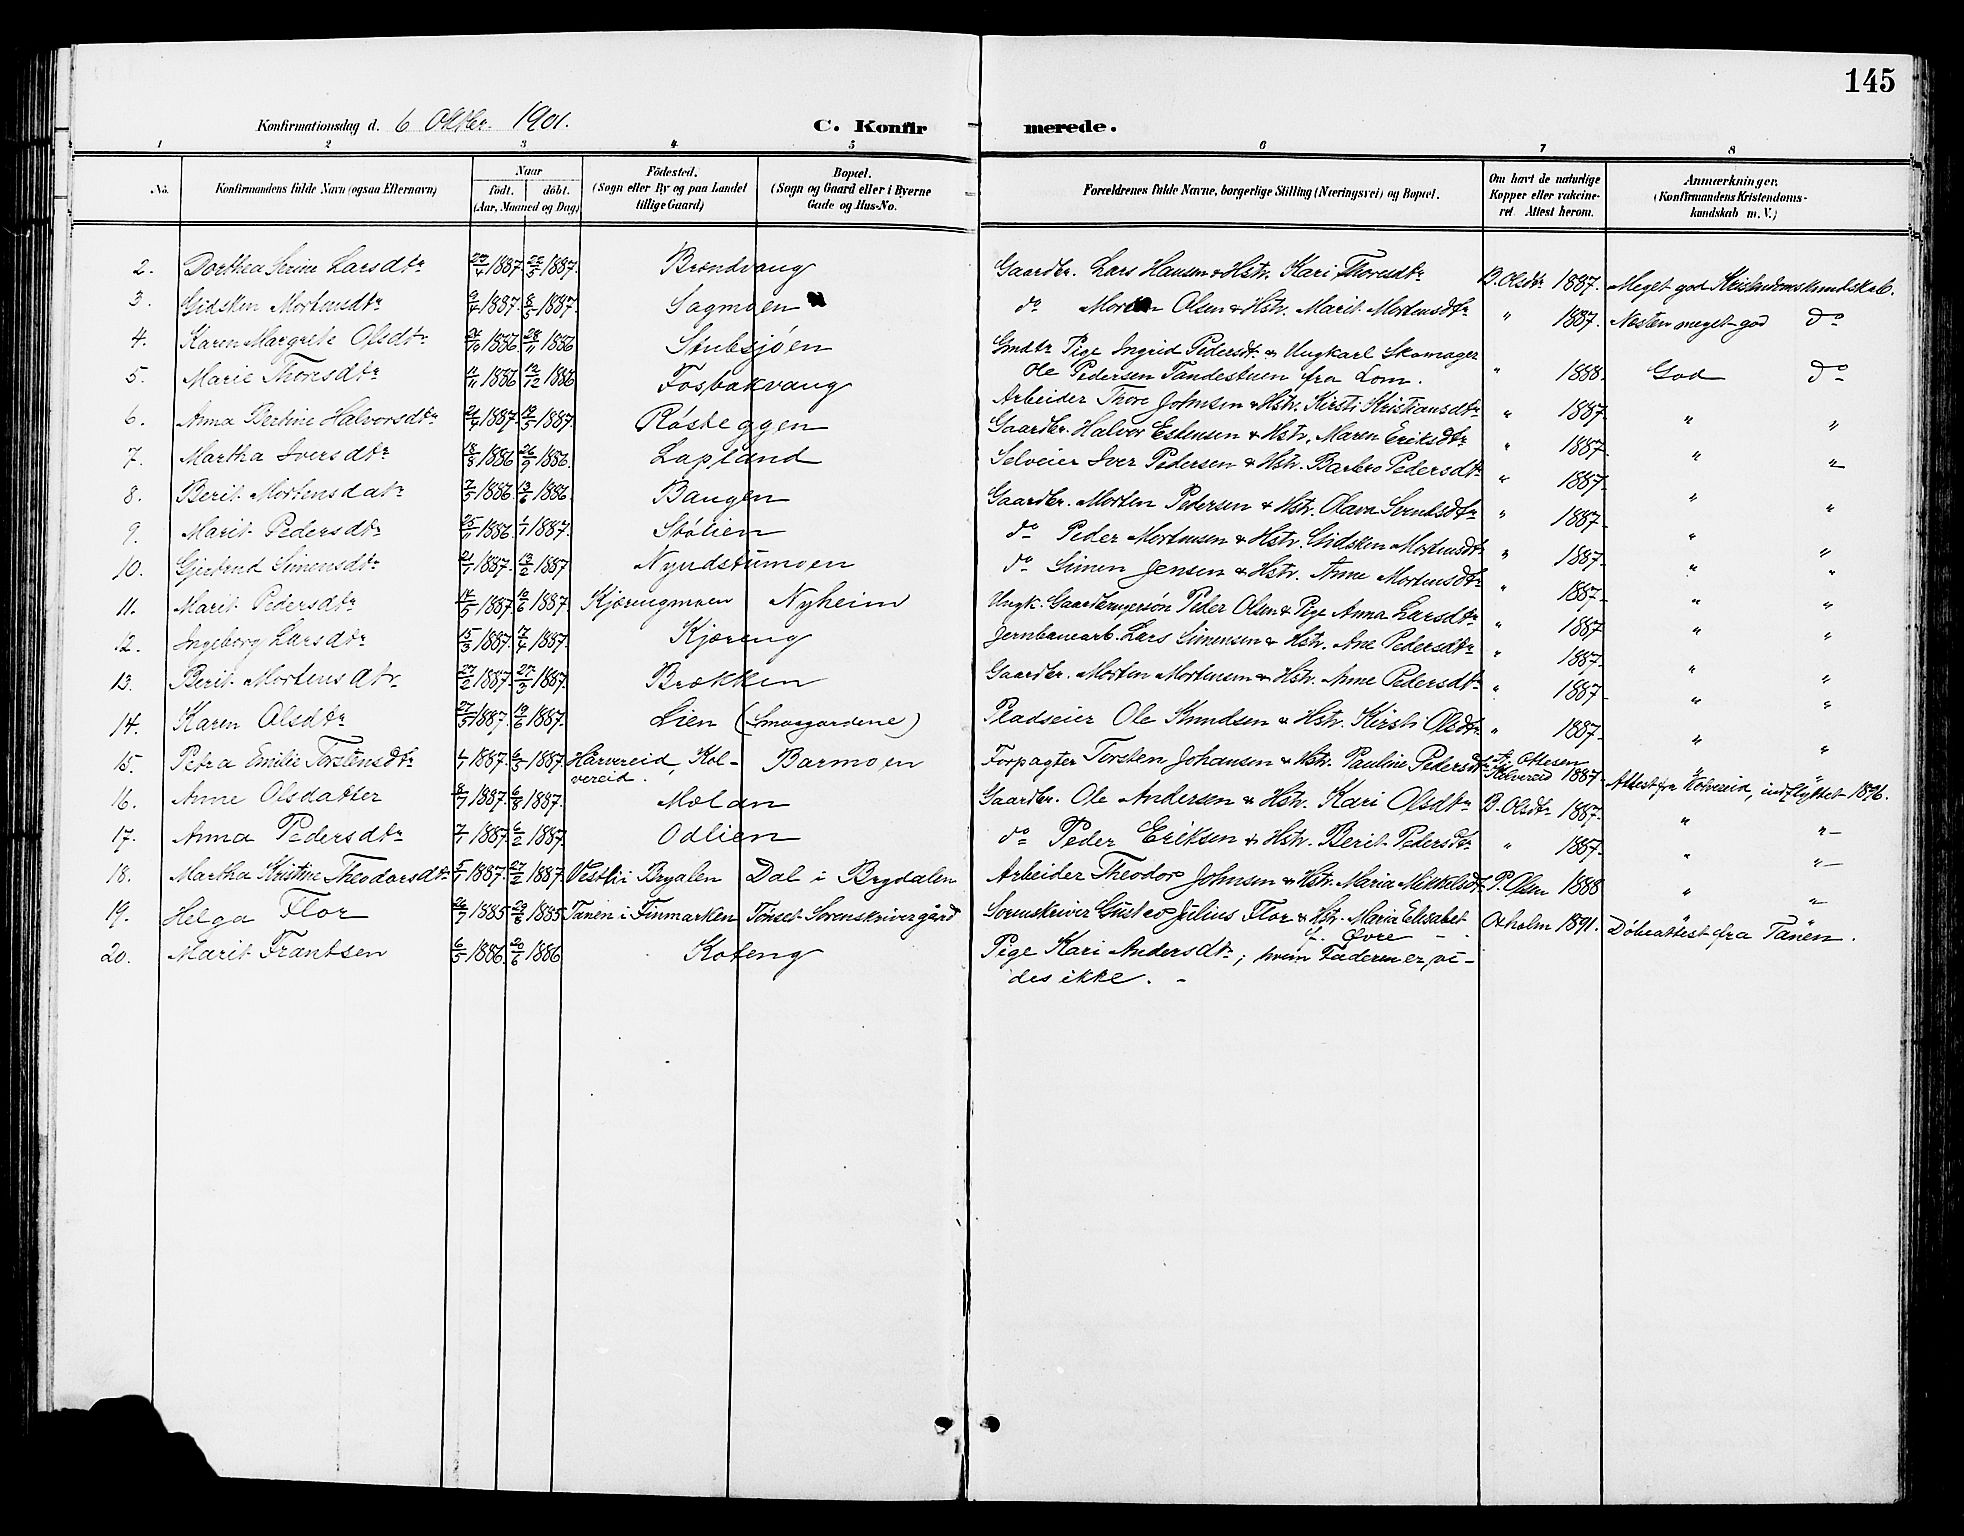 145
Konfirmationsdag d. 6 Oktbr. 1901.
C. Konfirmerede.
1 2 3 4 5 6 7 8
No. Konfirmandens fulde Navn (ogsaa Efternavn) Naar født. døbt. (Aar, Maaned og Dag) Fødested. (Sogn eller By og paa Landet tillige Gaard) Bopæl. (Sogn og Gaard eller i Byerne Gade og Hus-No. Forældrenes fulde Navne, borgerlige Stilling (Næringsvei) og Bopæl. Om havt de naturlige Kopper eller vakcineret Attest herom. Anmærkninger. (Konfirmandens Kristendomskundskab m. V.)
2. Dorthea Serine Larsdtr 1887. 1887. Brændvang Gaardbr. Lars Hansen & Hstr. Kari Thoresdtr B. Olsdtr 1887. Meget god Kristendomskundskab.
3. Gidsken Mortensdtr 9/4 1887. 8/5 1887. Sagmoen do Morten Olsen & Hstr. Marit Mortensdtr " 1887. Næsten meget god do
4. Karen Margrete Olsdtr 1886 28/11 1886 Stubsjøen Gmdtr Pige Ingrid Pedersdtr & Ungkarl Skomager
Ole Pedersen Tandestuen fra Lom. " 1888. God do
5. Marie Thoresdtr 11/11 1886 12/12 1886 Fosbakvang Arbeider Thore Johnsen & Hstr. Kirsti Kristiansdtr " 1887. " "
6. Anna Bertine Halvorsdtr 1887. 1887. Røsteggen Gaardbr. Halvor Estensen & Hstr. Maren Eriksdtr " 1887. " "
7. Martha Iversdtr 18/8 1886 26/9 1886. Lapland Selveier Iver Pedersen & Hstr. Barbro Pedersdtr " 1887. " "
8. Berit Mortensdatr 7/5 1886. 13/6 1886. Bangen Gaardbr. Morten Pedersen & Hstr. Olava Serntsdtr " 1887. " "
9. Marit Pedersdtr 25/11 1886. 1/1 1887. Stølien do Peder Mortensen & Hstr. Gidsken Mortensdtr " 1887. " "
10. Gjertrud Simensdtr 21/1 1887. 13/2 1887 Nyrudstumoen do Simen Jensen & Hstr. Anne Mortensdtr " 1887. " "
11. Marit Pedersdtr 14/5 1887. 12/6 1887. Kjærengmoen Nyheim Ungk. Gaardbrugersøn Peder Olsen & Pige Anna Larsdtr " 1887 " "
12. Ingeborg Larsdtr 15/3 1887. 17/4 1887. Kjæreng Jernbanearb. Lars Simensen & Hstr. Ane Pedersdtr " 1887. " "
13. Berit Mortensdtr. 27/2 1887. 27/3 1887. Brækken Gaardbr. Morten Mortensen & Hstr. Anne Pedersdtr " 1887. " "
14. Karen Olsdtr 27/5 1887. 19/6 1887. Lien (Smaagardene) Pladseier Ole Knudsen & Hstr. Kirsti Olsdtr " 1887. " "
15. Petra Emilie Torstensdtr 1887. 6/3 1887. Hårvereid, Kolvereid. Barmoen Forpagter Torsten Johansen & Hstr. Pauline Pedersdtr Ottesen Kolvereid 1887. Attest fra Kolvereid, indflyttet 1896.
16. Anne Olsdatter 8/7 1887. 6/8 1887. Mælan Gaardbr. Ole Andersen & Hstr. Kari Olsdtr B. Olsdtr 1887. " "
17. Anna Pedersdtr 7/1 1887. 6/2 1887. Odlien do Peder Eriksen & Hstr. Berit Pedersdtr " 1887. " "
18. Martha Kristine Theodorsdtr 5/1 1887. 27/2 1887. Vestli i Brydalen Dal i Brydalen Arbeider Theodor Johnsen & Hstr. Maria Mikkelsdtr P. Olsen 1888 " "
19. Helga Flor 26/7 1885 29/8 1885 Tanen i Finmarken Tønset Sorenskrivergård Sorenskriver Gustav Julius Flor & Hstr. Maria Elisabet
f. Øvre Oxholm 1891. Døbeattest fra Tanen.
20. Marit Frantsen 6/5 1886. 20/6 1886. Koteng Pige Kari Andersdtr; hvem Faderen er, vi-
des ikke.